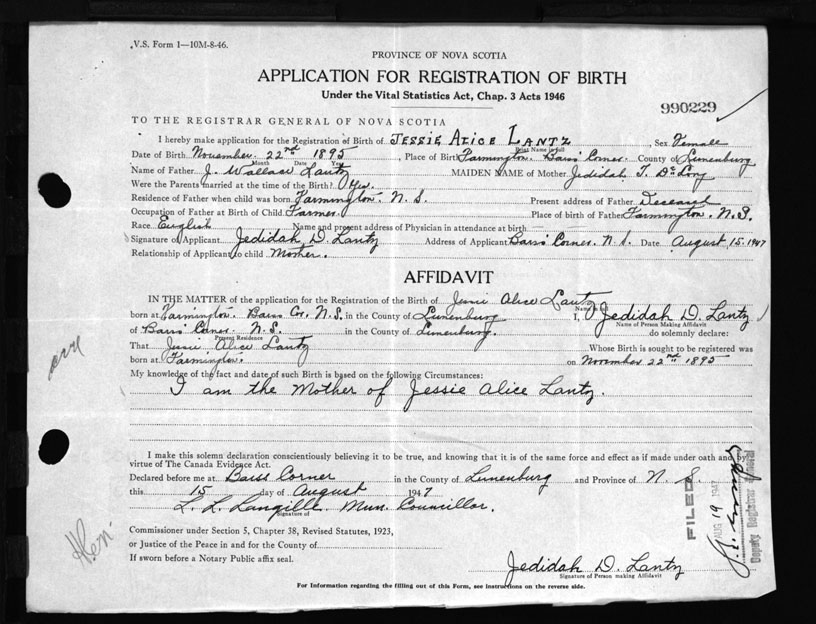 V.S. Form 1—10M-8-46.
PROVINCE OF NOVA SCOTIA
APPLICATION FOR REGISTRATION OF BIRTH
Under the Vital Statistics Act, Chap. 3 Acts 1946
990229
TO THE REGISTRAR GENERAL OF NOVA SCOTIA
I hereby make application for the Registration of Birth of JESSIE ALICE LANTZ, Sex Female
Print Name in full
Date of Birth November 22nd 1895, Place of Birth Farmington Barss Corner County of Lunenburg
Month Date Year
Name of Father J. Wallace Lantz MAIDEN NAME of Mother Jedidah T. DeLong
Were the Parents married at the time of the Birth? Yes.
Residence of Father when child was born Farmington. N.S. Present address of Father Deceased
Occupation of Father at Birth of Child Farmer Place of birth of Father Farmington. N.S.
Race English Name and present address of Physician in attendance at birth
Signature of Applicant Jedidah D. Lantz Address of Applicant Barss Corner. N.S. Date August 15. 1947
Relationship of Applicant to child Mother.
AFFIDAVIT
IN THE MATTER of the application for the Registration of the Birth of Jessie Alice Lantz
Name in full
born at Farmington. Barss Cor. N.S. in the County of Lunenburg I, Jedidah D. Lantz
Name of Person Making Affidavit
of Barss Corner. N.S. in the County of Lunenburg. do solemnly declare:
Present Residence
That Jessie Alice Lantz Whose Birth is sought to be registered was
born at Farmington. on November 22nd 1895
My knowledge of the fact and date of such Birth is based on the following Circumstances:
I am the Mother of Jessie Alice Lantz.
I make this solemn declaration conscientiously believing it to be true, and knowing that it is of the same force and effect as if made under oath and by
virtue of The Canada Evidence Act.
Declared before me at Barss Corner in the County of Lunenburg and Province of N.S.
this 15 day of August 1947
L. L. Langille. Mun. Councillor.
Signature of
Commissioner under Section 5, Chapter 38, Revised Statutes, 1923,
or Justice of the Peace in and for the County of
If sworn before a Notary Public affix seal.
Jedidah D. Lantz
Signature of Person making Affidavit
For Information regarding the filling out of this Form, see instructions on the reverse side.
FILED
AUG 19 1947
Deputy Registrar General